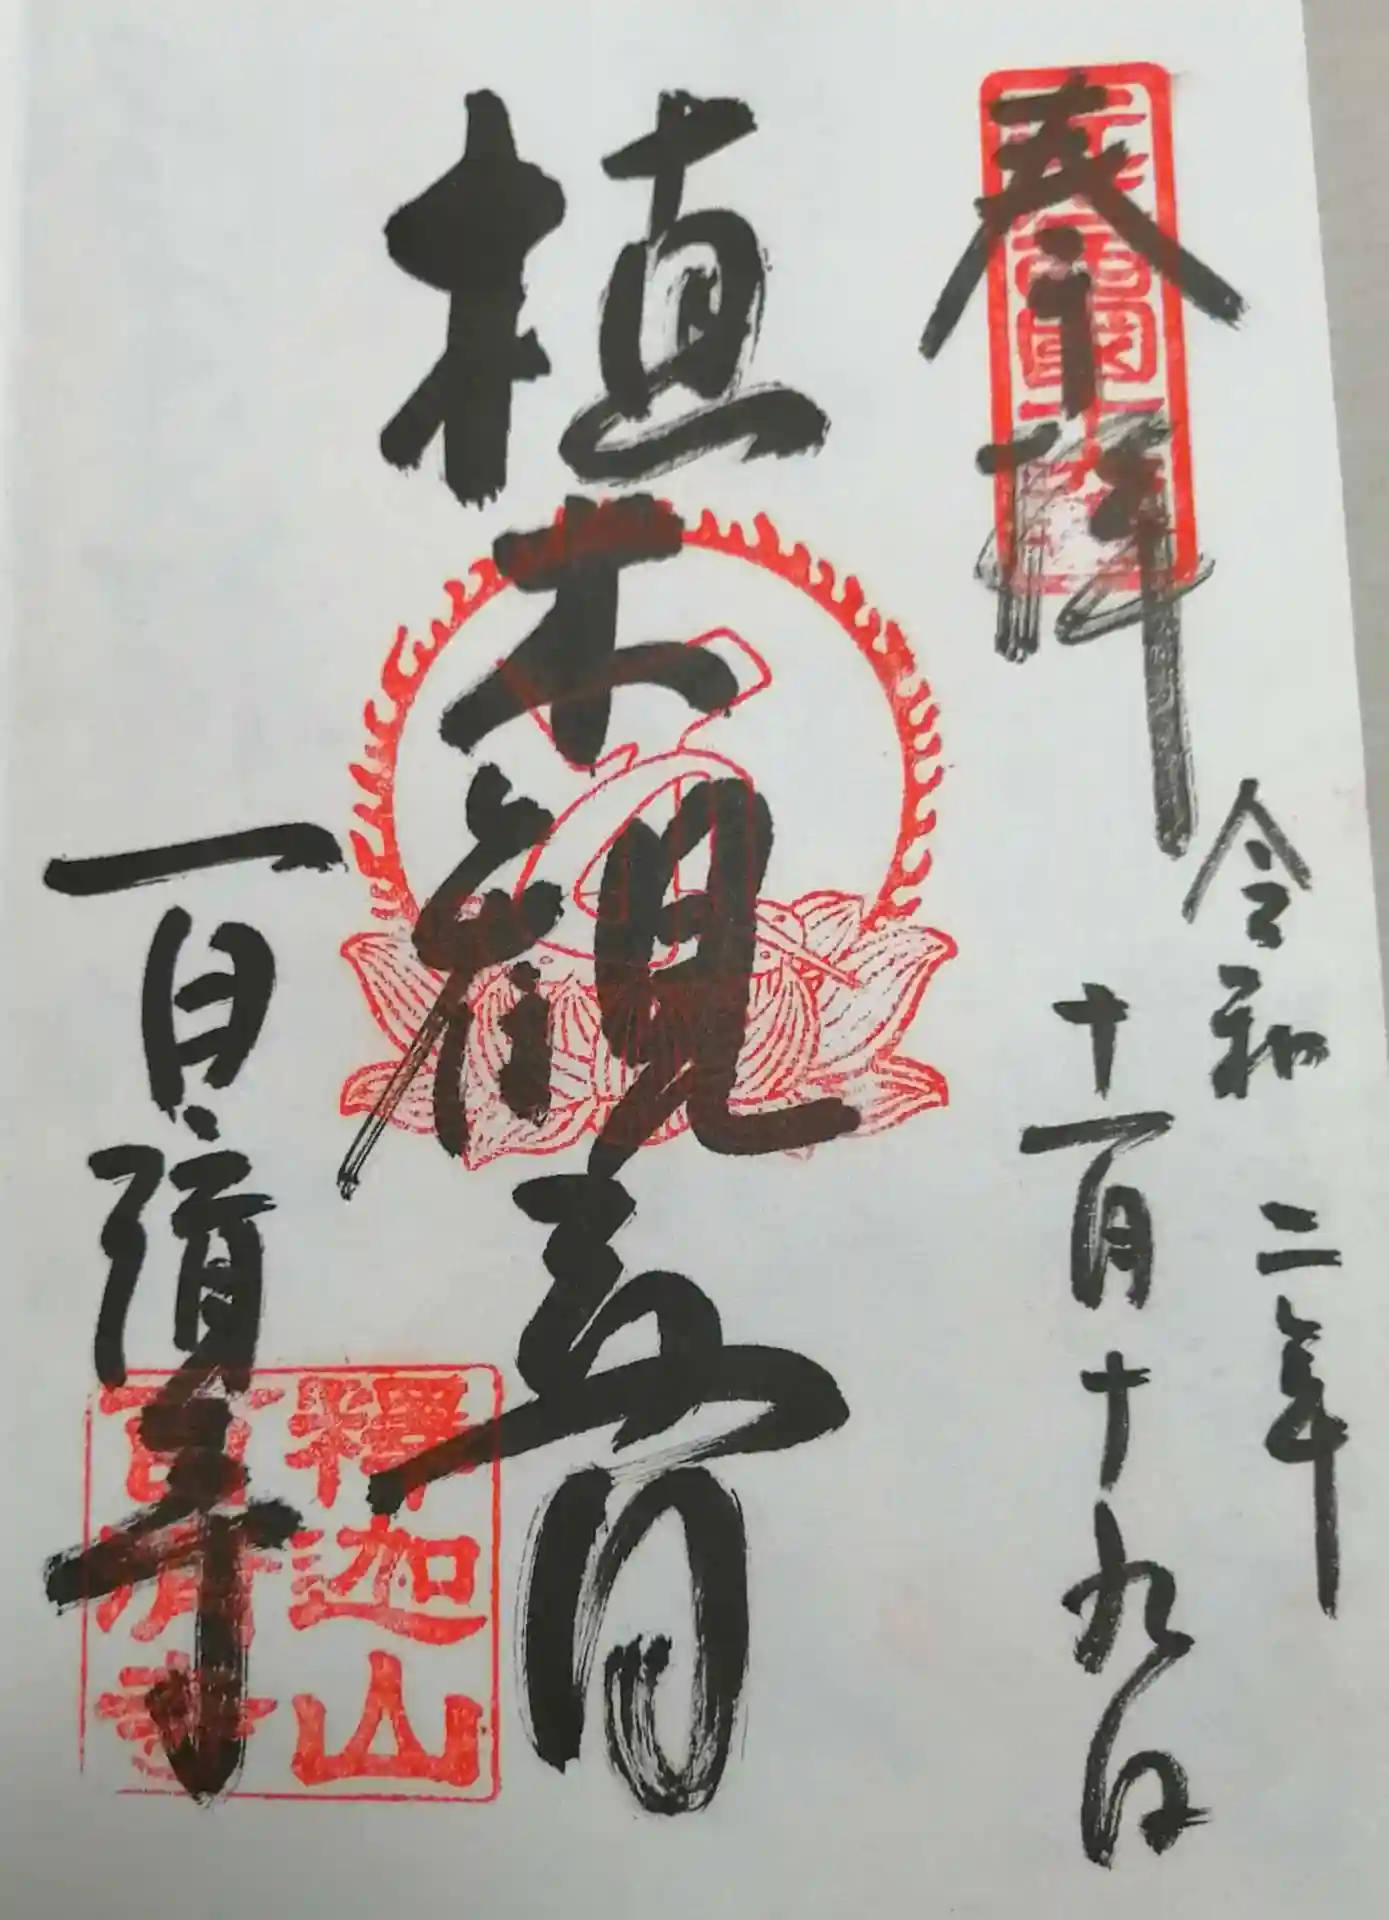 奉拝
令和二年
十一月十九日
植木観音
百済寺
釋迦山
百済寺